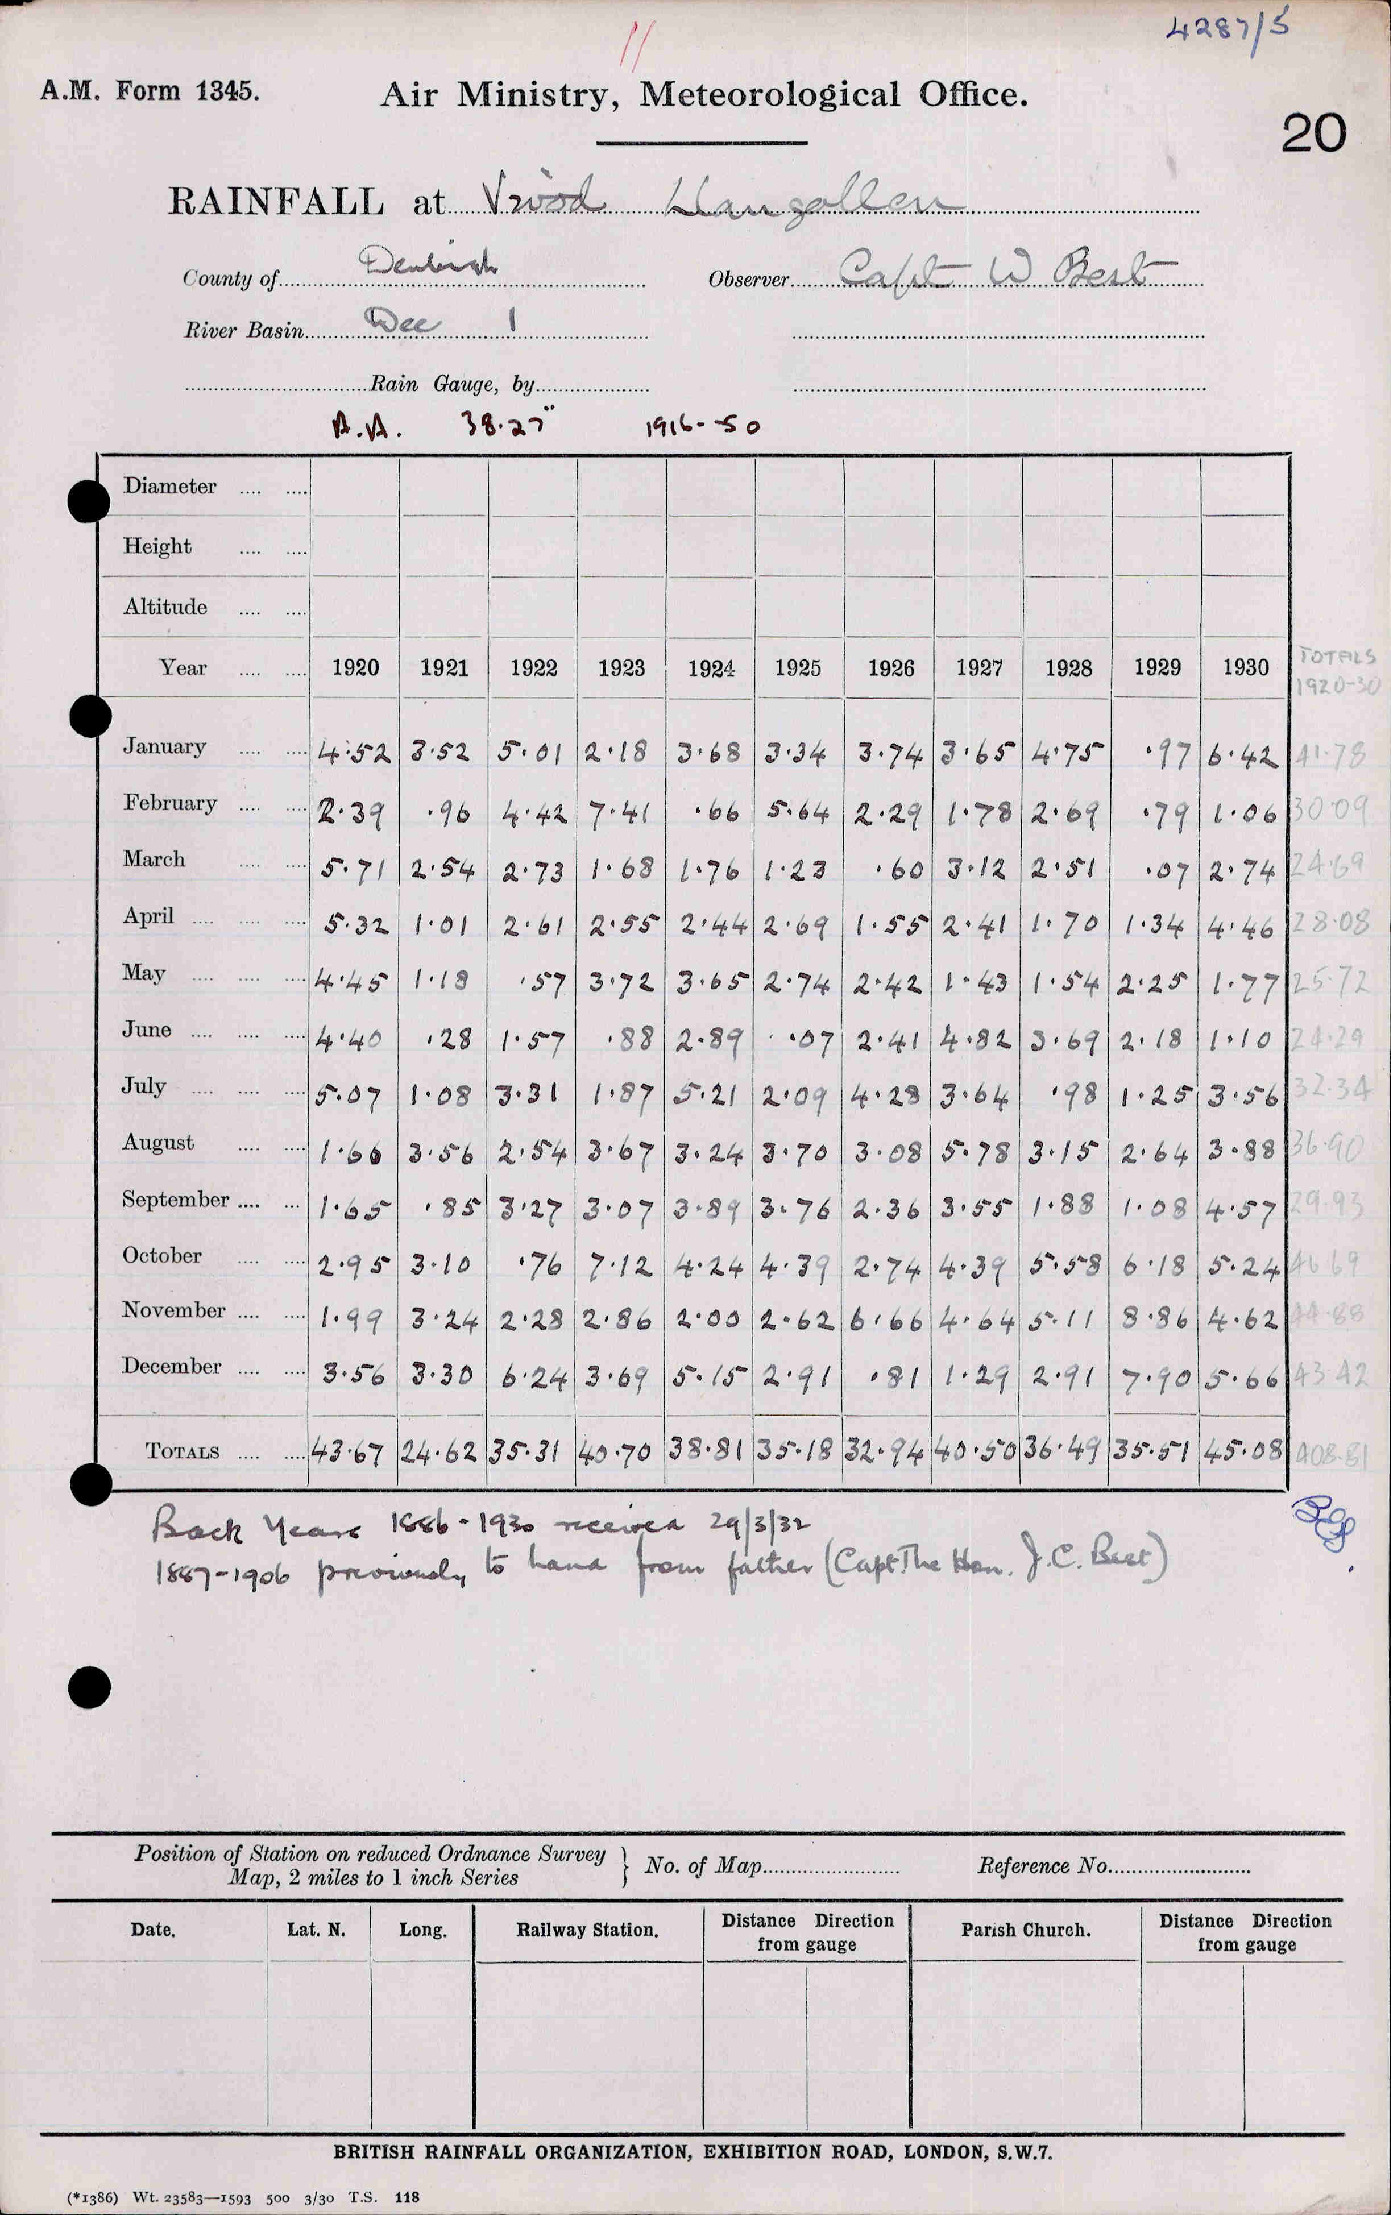 4287/5
11
A.M. Form 1345.
Air Ministry, Meteorological Office.
20
RAINFALL at Vivod Llangollen
County of Denbigh Observer Capt W Best
River Basin Dee 1
Rain Gauge, by
A.A. 38.27" 1916-50
Diameter
Height
Altitude
Year 1920 1921 1922 1923 1924 1925 1926 1927 1928 1929 1930 TOTALS 1920-30
January 4.52 3.52 5.01 2.18 3.68 3.34 3.74 3.65 4.75 .97 6.42 41.78
February 2.39 .96 4.42 7.41 .66 5.64 2.29 1.78 2.69 .79 1.06 30.09
March 5.71 2.54 2.73 1.68 1.76 1.23 .60 3.12 2.51 .07 2.74 24.69
April 5.32 1.01 2.61 2.55 2.44 2.69 1.55 2.41 1.70 1.34 4.46 28.08
May 4.45 1.18 .57 3.72 3.65 2.74 2.42 1.43 1.54 2.25 1.77 25.72
June 4.40 .28 1.57 .88 2.89 .07 2.41 4.82 3.69 2.18 1.10 24.29
July 5.07 1.08 3.31 1.87 5.21 2.09 4.28 3.64 .98 1.25 3.56 32.34
August 1.66 3.56 2.54 3.67 3.24 3.70 3.08 5.78 3.15 2.64 3.88 36.90
September 1.65 .85 3.27 3.07 3.89 3.76 2.36 3.55 1.88 1.08 4.57 29.93
October 2.95 3.10 .76 7.12 4.24 4.39 2.74 4.39 5.58 6.18 5.24 46.69
November 1.99 3.24 2.28 2.86 2.00 2.62 6.66 4.64 5.11 8.86 4.62 44.88
December 3.56 3.30 6.24 3.69 5.15 2.91 .81 1.29 2.91 7.90 5.66 43.42
TOTALS 43.67 24.62 35.31 40.70 38.81 35.18 32.94 40.50 36.49 35.51 45.08 408.81
Back Years 1886-1930 received 29/3/32
1887-1906 previously to hand from father (Capt. The Hon. J.C. Best)
Position of Station on reduced Ordnance Survey
Map, 2 miles to 1 inch Series } No. of Map Reference No.
Date. Lat. N. Long. Railway Station. Distance Direction from gauge Parish Church. Distance Direction from gauge
BRITISH RAINFALL ORGANIZATION, EXHIBITION ROAD, LONDON, S.W.7.
(*1386) Wt. 23583—1593 500 3/30 T.S. 118